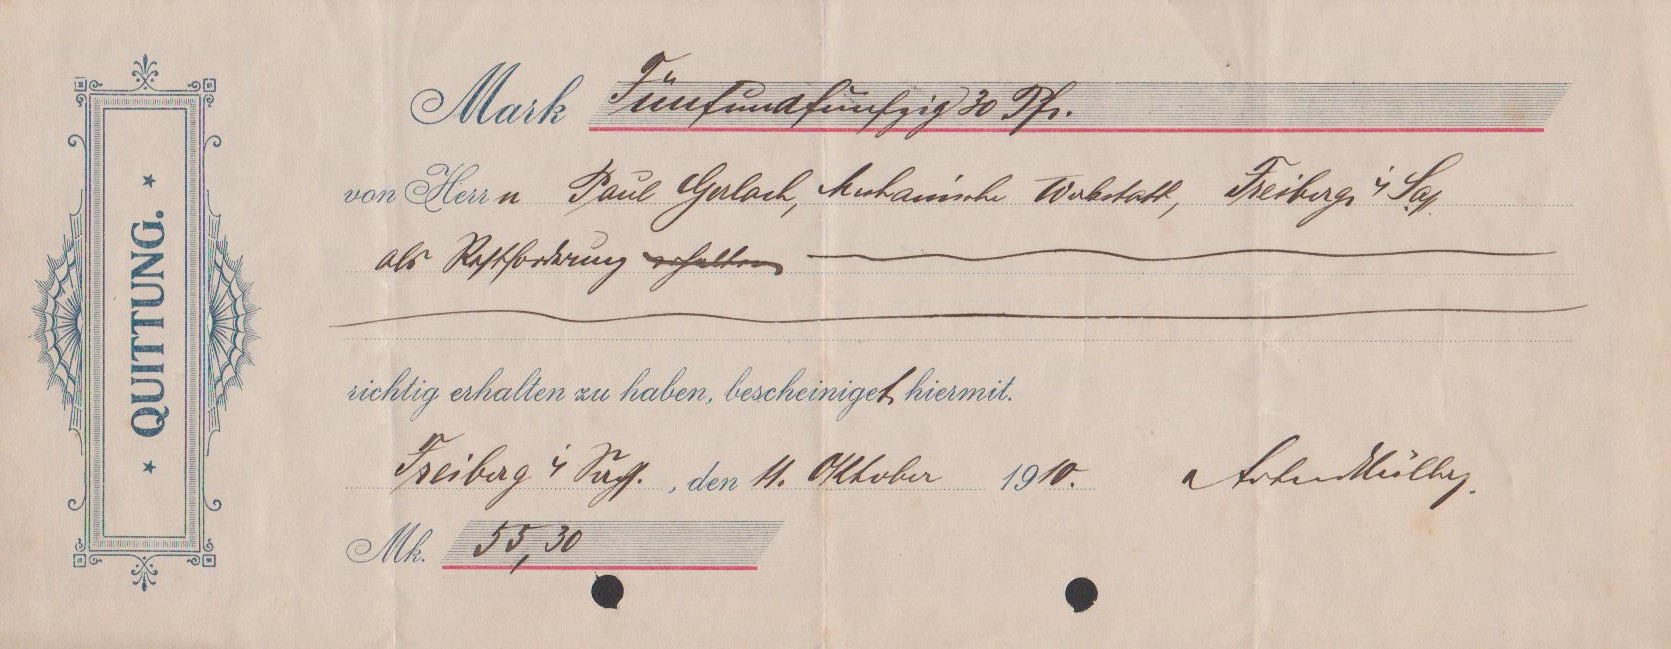 ★ QUITTUNG. ★
Mark Fünfundfünfzig 30 Pfg.
von Herrn Paul Gerlach, Mechanische Werkstatt, Freiberg i/ Sa.
als Restforderung erhalten
richtig erhalten zu haben, bescheiniget hiermit.
Freiberg i/ Sachs., den 11. Oktober 1910.
Mk. 55,30